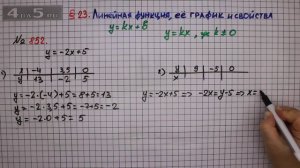 4 по 5
§ 23. Линейная функция, её график и свойства
y=kx+b
y=kx, где k≠0
№ 852.
y=-2x+5
x | -4 | 3,5 | 0
y | 13 | -2 | 5
y=-2·(-4)+5=8+5=13
y=-2·3,5+5=-7+5=-2
y=-2·0+5=5
y | 9 | -5 | 0
x
y=-2x+5 => -2x=y-5 => x=